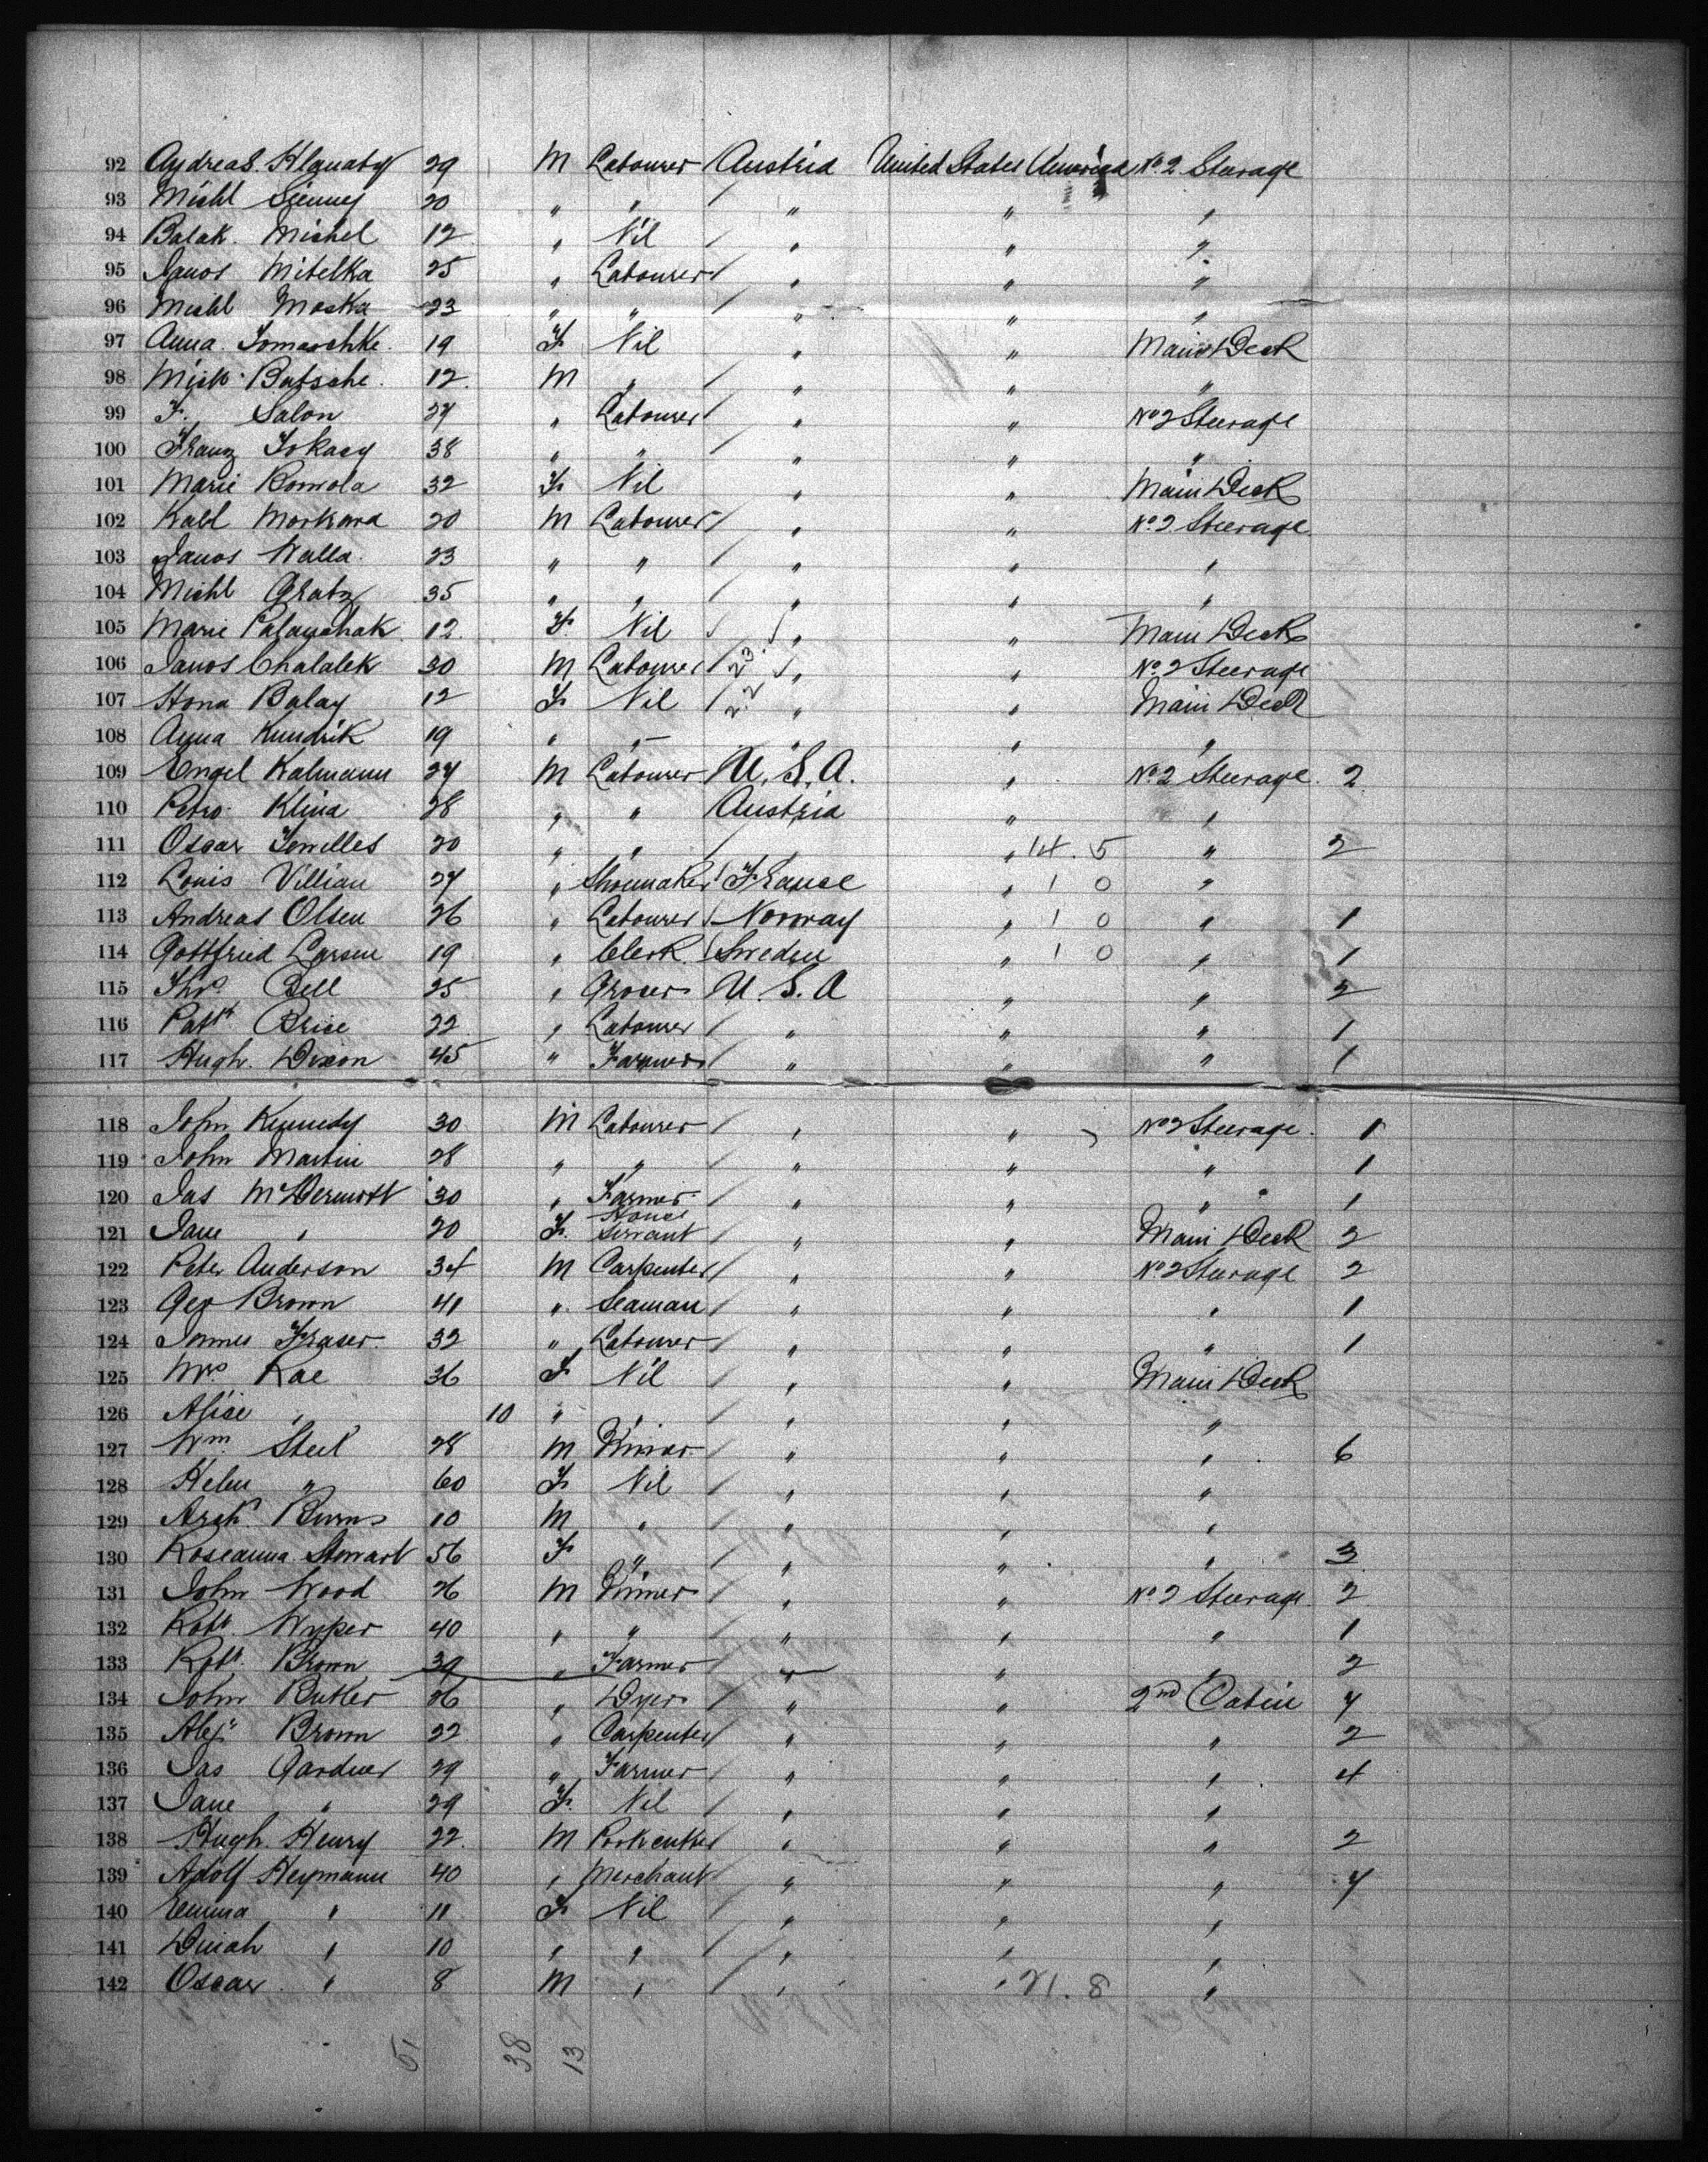 92 29 M Labourer Austria United States America No. 2 Steerage
93 Michl 20 " " " " "
94 Balak. Michel 12 " Nil " " "
95 Janos Mitelka 25 " Labourer " " "
96 Michl Moska 23 " " " " "
97 Anna Tomaschke. 19 F Nil " " Main Deck
98 Batsche. 12. M " " " "
99 F. Salon 27 " Labourer " " No 2 Steerage
100 Franz 38 " " " " "
101 Marie 32 F Nil " " Main Deck
102 20 M Labourer " " No. 2 Steerage.
103 Janos Walla. 23 " " " " "
104 Michl Gratz 35 " " " " "
105 Marie 12. F. Nil " " Main Deck
106 Janos Chalalek 30 M Labourer 23. " " No. 2 Steerage
107 Balay 12 F Nil 2.2 " " Main Deck
108 Anna Kundrik 19 " " " " "
109 Engel Kalmann 27 M Labourer U. S. A. " No. 2 Steerage. 2
110 Petro. Klina 28 " " Austria " "
111 Oscar 20 " " " " 14.5 " 2
112 Louis Villian 27 " Shoemaker France " 1 0 "
113 Andreas Olsen 26 " Labourer Norway " 1 0 " 1
114 Gottfried Larsen 19 " Clerk. Sweden " 1 0 " 1
115 Thos. Bell 25 " Grocer U. S. A " " 2
116 Patk. Brice 22 " Labourer " " " 1
117 Hugh. Dixon 45 " Farmer " " " 1
118 John Kennedy 30 M Labourer " " No 2 Steerage. 1
119 John Martin 28 " " " " " 1
120 Jas McDermott 30 " Farmer " " " 1
121 Jane " 20 F. House Servant " " Main Deck 2
122 Peter Anderson 34 M Carpenter " " No. 2 Steerage 2
123 Geo Brown 41 " Seaman " " " 1
124 James Fraser. 32 " Labourer " " " 1
125 Mrs. Rae 36 F Nil " " Main Deck
126 Alice " 10 " " " " "
127 Wm. Steel 28 M Miner. " " " 6
128 Helen " 60 F Nil " " "
129 Archd. Burns 10 M " " " "
130 Roseanna Stewart 56 F " " " " 3
131 John Wood 26 M Miner " " No 2 Steerage 2
132 Robt. Wyper 40 " " " " " 1
133 Robt. Brown 39 " Farmer " " " 2
134 John Butler 26 " Dyer " " 2nd Cabin 7
135 Alexr Brown 22 " Carpenter " " " 2
136 Jas Gardner 29 " Farmer " " " 4
137 Jane " 29 F. Nil " " "
138 Hugh. Henry 22. M " " " 2
139 Adolf Heymann 40 " Merchant " " " 7
140 Emma " 11 F Nil " " "
141 Dinah " 10 " " " " "
142 Oscar. " 8 M " " " 21.8 "
51 38 13